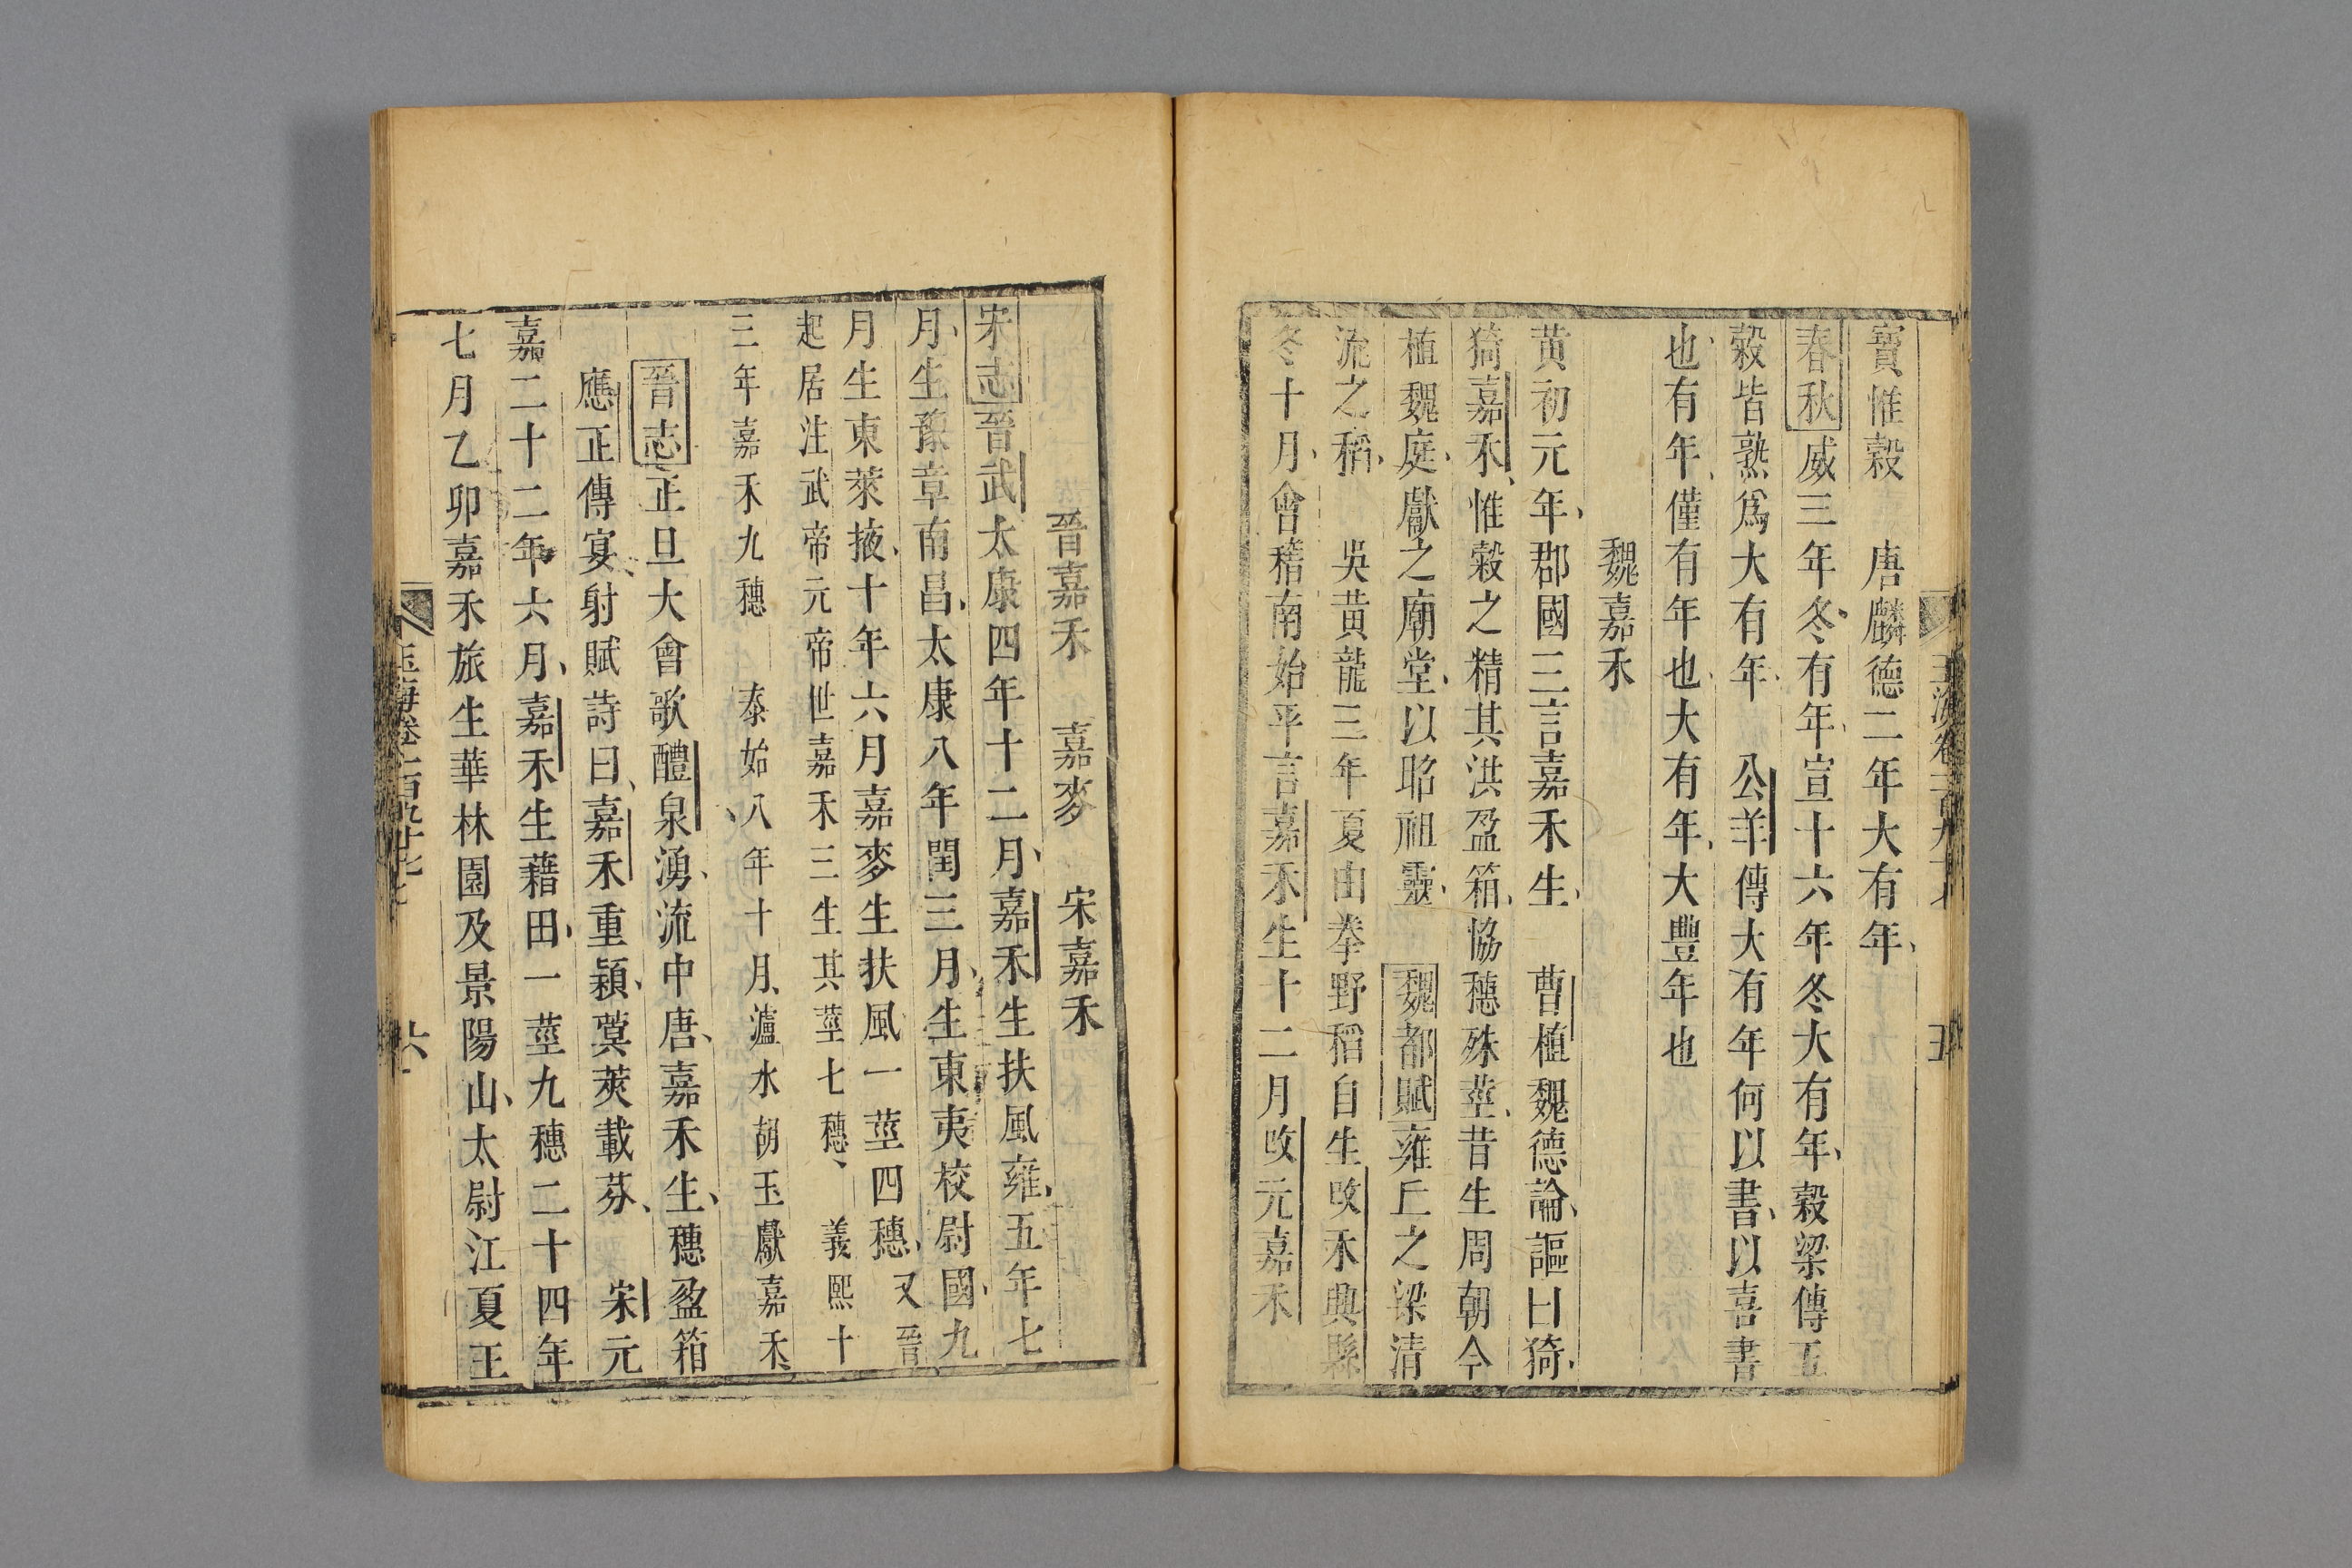 寶惟穀　唐麟德二年大有年
春秋威三年冬有年宣十六年冬大有年穀梁傳五
穀皆熟爲大有年　公羊傳大有年何以書以喜書
也有年僅有年也大有年大豐年也
魏嘉禾
黃初元年郡國三言嘉禾生　曹植魏德論謳曰猗
猗嘉禾惟穀之精其洪盈箱協穗殊莖昔生周朝今
植魏庭獻之廟堂以昭祖靈　魏都賦雍丘之梁清
流之稻　吳黃龍三年夏由拳野稻自生改禾興縣
冬十月會稽南始平言嘉禾生十二月改元嘉禾
晉嘉禾　嘉麥　宋嘉禾
宋志晉武太康四年十二月嘉禾生扶風雍五年七
月生豫章南昌太康八年閏三月生東夷校尉國九
月生東萊掖十年六月嘉麥生扶風一莖四穗又晉
起居注武帝元帝世嘉禾三生其莖七穗　義熙十
三年嘉禾九穗　泰始八年十月瀘水胡玉獻嘉禾
晉志正旦大會歌醴泉湧流中唐嘉禾生穗盈箱
應正傳宴射賦詩曰嘉禾重穎蓂莢載芬　宋元
嘉二十二年六月嘉禾生藉田一莖九穗二十四年
七月乙卯嘉禾旅生華林園及景陽山太尉江夏王
玉海卷一百九十七
六